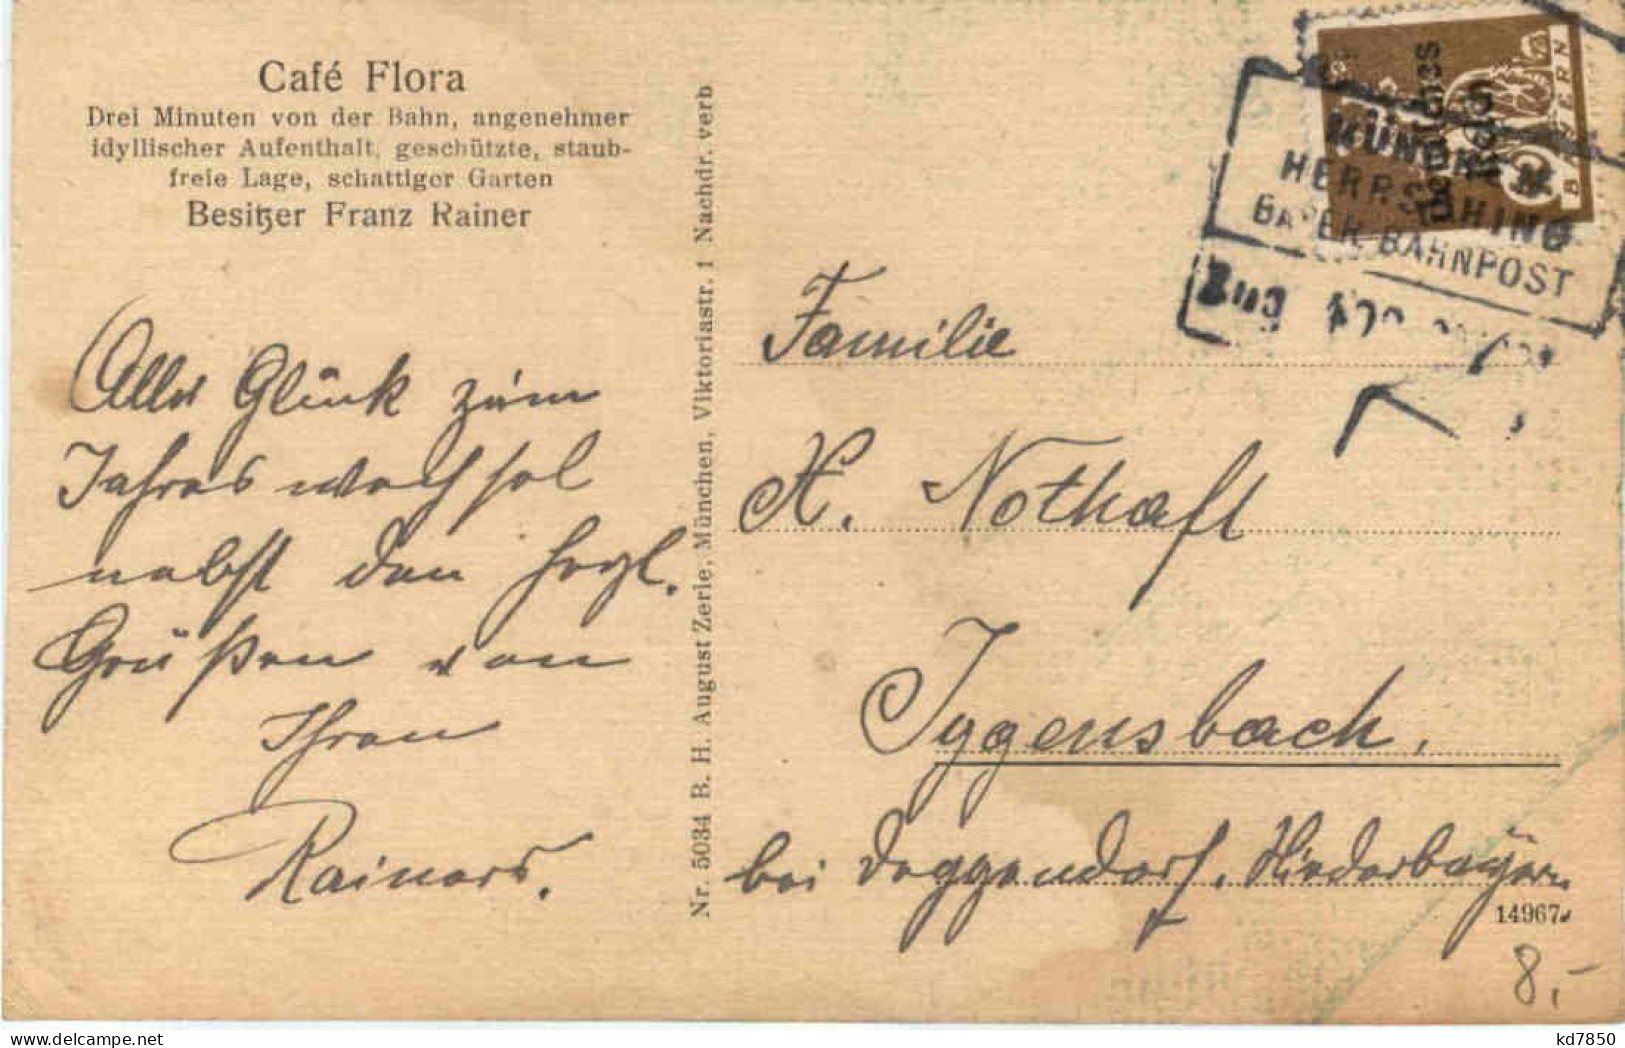 Café Flora
Drei Minuten von der Bahn, angenehmer
idyllischer Aufenthalt, geschützte, staub-
freie Lage, schattiger Garten
Besitzer Franz Rainer
Alles Glück zum
Jahreswechsel
nebst den herzl.
Grüßen von
Ihren
Rainers.
Nr. 5034 B. H. August Zerle, München, Viktoriastr. 1 Nachdr. verb
Deutsches
Reich
BAYERN
MÜNCHEN
HERRSCHING
BAYER. BAHNPOST
Zug
Familie
X. Nothaft
Iggensbach.
bei Deggendorf. Niederbayern.
14967
8,-
kd7850